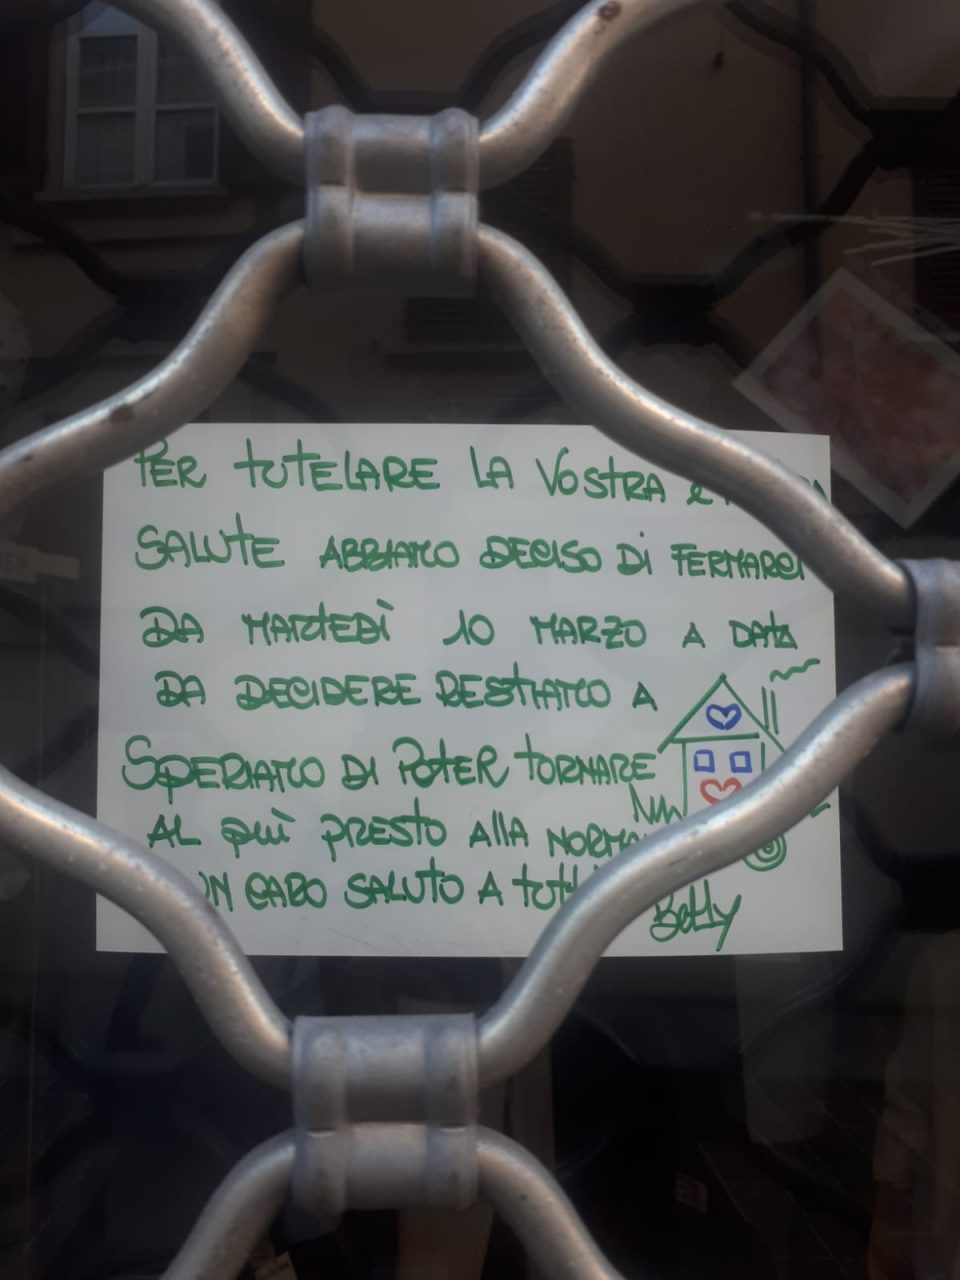 PER TUTELARE LA VOSTRA e
SALUTE ABBIAMO DECISO Di FERMARCI
DA MARTEDÌ 10 MARZO A DATA
DA DECIDERE RESTIAMO A
SPERIAMO DI POTER TORNARE
AL PIÙ PRESTO ALLA
UN CARO SALUTO A
Betty